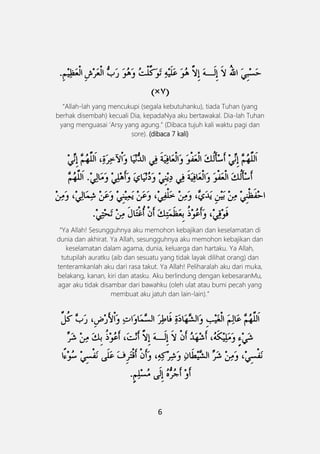 حَسْبِيَ اللهُ لَا إِلَـهَ إِلَّا هُوَ عَلَيْهِ تَوَكَّلْتُ وَهُوَ رَبُّ الْعَرْشِ الْعَظِيْمِ.
(×٧)
"Allah-lah yang mencukupi (segala kebutuhanku), tiada Tuhan (yang
berhak disembah) kecuali Dia, kepadaNya aku bertawakal. Dia-lah Tuhan
yang menguasai 'Arsy yang agung." (Dibaca tujuh kali waktu pagi dan
sore). (dibaca 7 kali)
اَللَّهُمَّ إِنِّيْ أَسْأَلُكَ الْعَفْوَ وَالْعَافِيَةَ فِي الدُّنْيَا وَاْلآخِرَةِ، اَللَّهُمَّ إِنِّيْ
أَسْأَلُكَ الْعَفْوَ وَالْعَافِيَةَ فِي دِيْنِيْ وَدُنْيَايَ وَأَهْلِيْ وَمَالِيْ. اَللَّهُمَّ
احْفَظْنِيْ مِنْ بَيْنِ يَدَيَّ، وَمِنْ خَلْفِيْ، وَعَنْ يَمِيْنِيْ وَعَنْ شِمَالِيْ، وَمِنْ
فَوْقِيْ، وَأَعُوْذُ بِعَظَمَتِكَ أَنْ أُغْتَالَ مِنْ تَحْتِيْ.
"Ya Allah! Sesungguhnya aku memohon kebajikan dan keselamatan di
dunia dan akhirat. Ya Allah, sesungguhnya aku memohon kebajikan dan
keselamatan dalam agama, dunia, keluarga dan hartaku. Ya Allah,
tutupilah auratku (aib dan sesuatu yang tidak layak dilihat orang) dan
tenteramkanlah aku dari rasa takut. Ya Allah! Peliharalah aku dari muka,
belakang, kanan, kiri dan atasku. Aku berlindung dengan kebesaranMu,
agar aku tidak disambar dari bawahku (oleh ulat atau bumi pecah yang
membuat aku jatuh dan lain-lain)."
اَللَّهُمَّ عَالِمَ الْغَيْبِ وَالشَّهَادَةِ فَاطِرَ السَّمَاوَاتِ وَاْلأَرْضِ، رَبَّ كُلِّ
شَيْءٍ وَمَلِيْكَهُ، أَشْهَدُ أَنْ لَا إِلَـهَ إِلَّا أَنْتَ، أَعُوْذُ بِكَ مِنْ شَرِّ
نَفْسِيْ، وَمِنْ شَرِّ الشَّيْطَانِ وَشِرْكِهِ، وَأَنْ أَقْتَرِفَ عَلَى نَفْسِيْ سُوْءًا
أَوْ أَجُرَّهُ إِلَى مُسْلِمٍ.
6